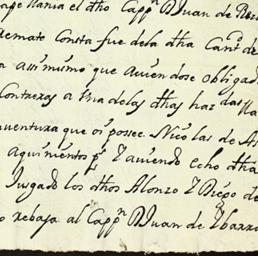 llania el dho Capp.n D Juan de
Remate Consta fue dela dha Cant.d de
assimismo que aviendose obligad
a Vna delas dhas haz.das lla
que oi posee Nicolas de A
aquimientos p.r Y aviendo echo dha
Jusgado los dhos Alonzo Y Diego de
o rebaja al Capp.n D Juan de Ybarra